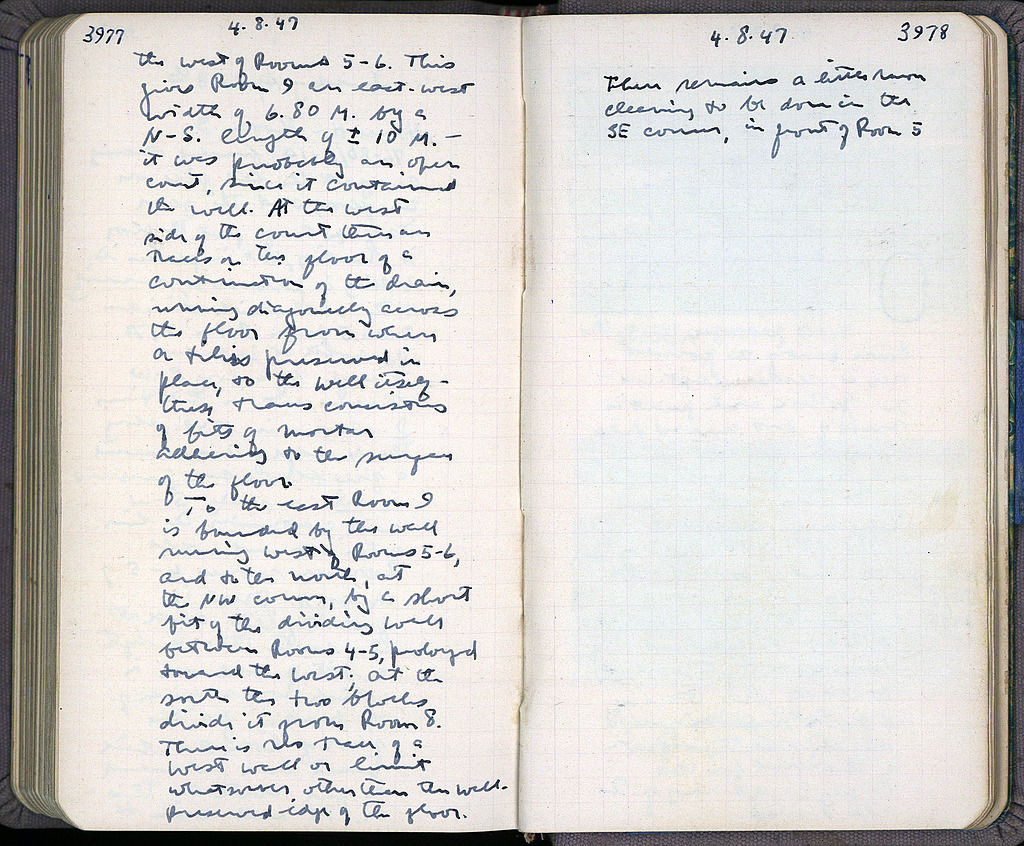 3977
4.8.47
the west of Rooms 5-6. This
gives Room 9 an east-west
width of 6.80 M. by a
N-S. length of ± 10 M. –
it was probably an open
court, since it contained
the well. At the west
side of the court there are
traces on the floor of a
continuation of the drain,
running diagonally across
the floor from where
a tile is preserved in
place, to the well itself –
these traces consisting
of bits of mortar
adhering to the surface
of the floor
To the east Room 9
is bounded by the wall
running west of Rooms 5-6,
and to the north, at
the NW corner, by a short
bit of the dividing wall
between Rooms 4-5, prolonged
toward the west; at the
south the two blocks
divide it from Room 8.
There is no trace of a
west wall or limit
whatsoever other than the well-
preserved edge of the floor.
4.8.47
3978
There remains a little more
cleaning to be done in the
SE corner, in front of Room 5